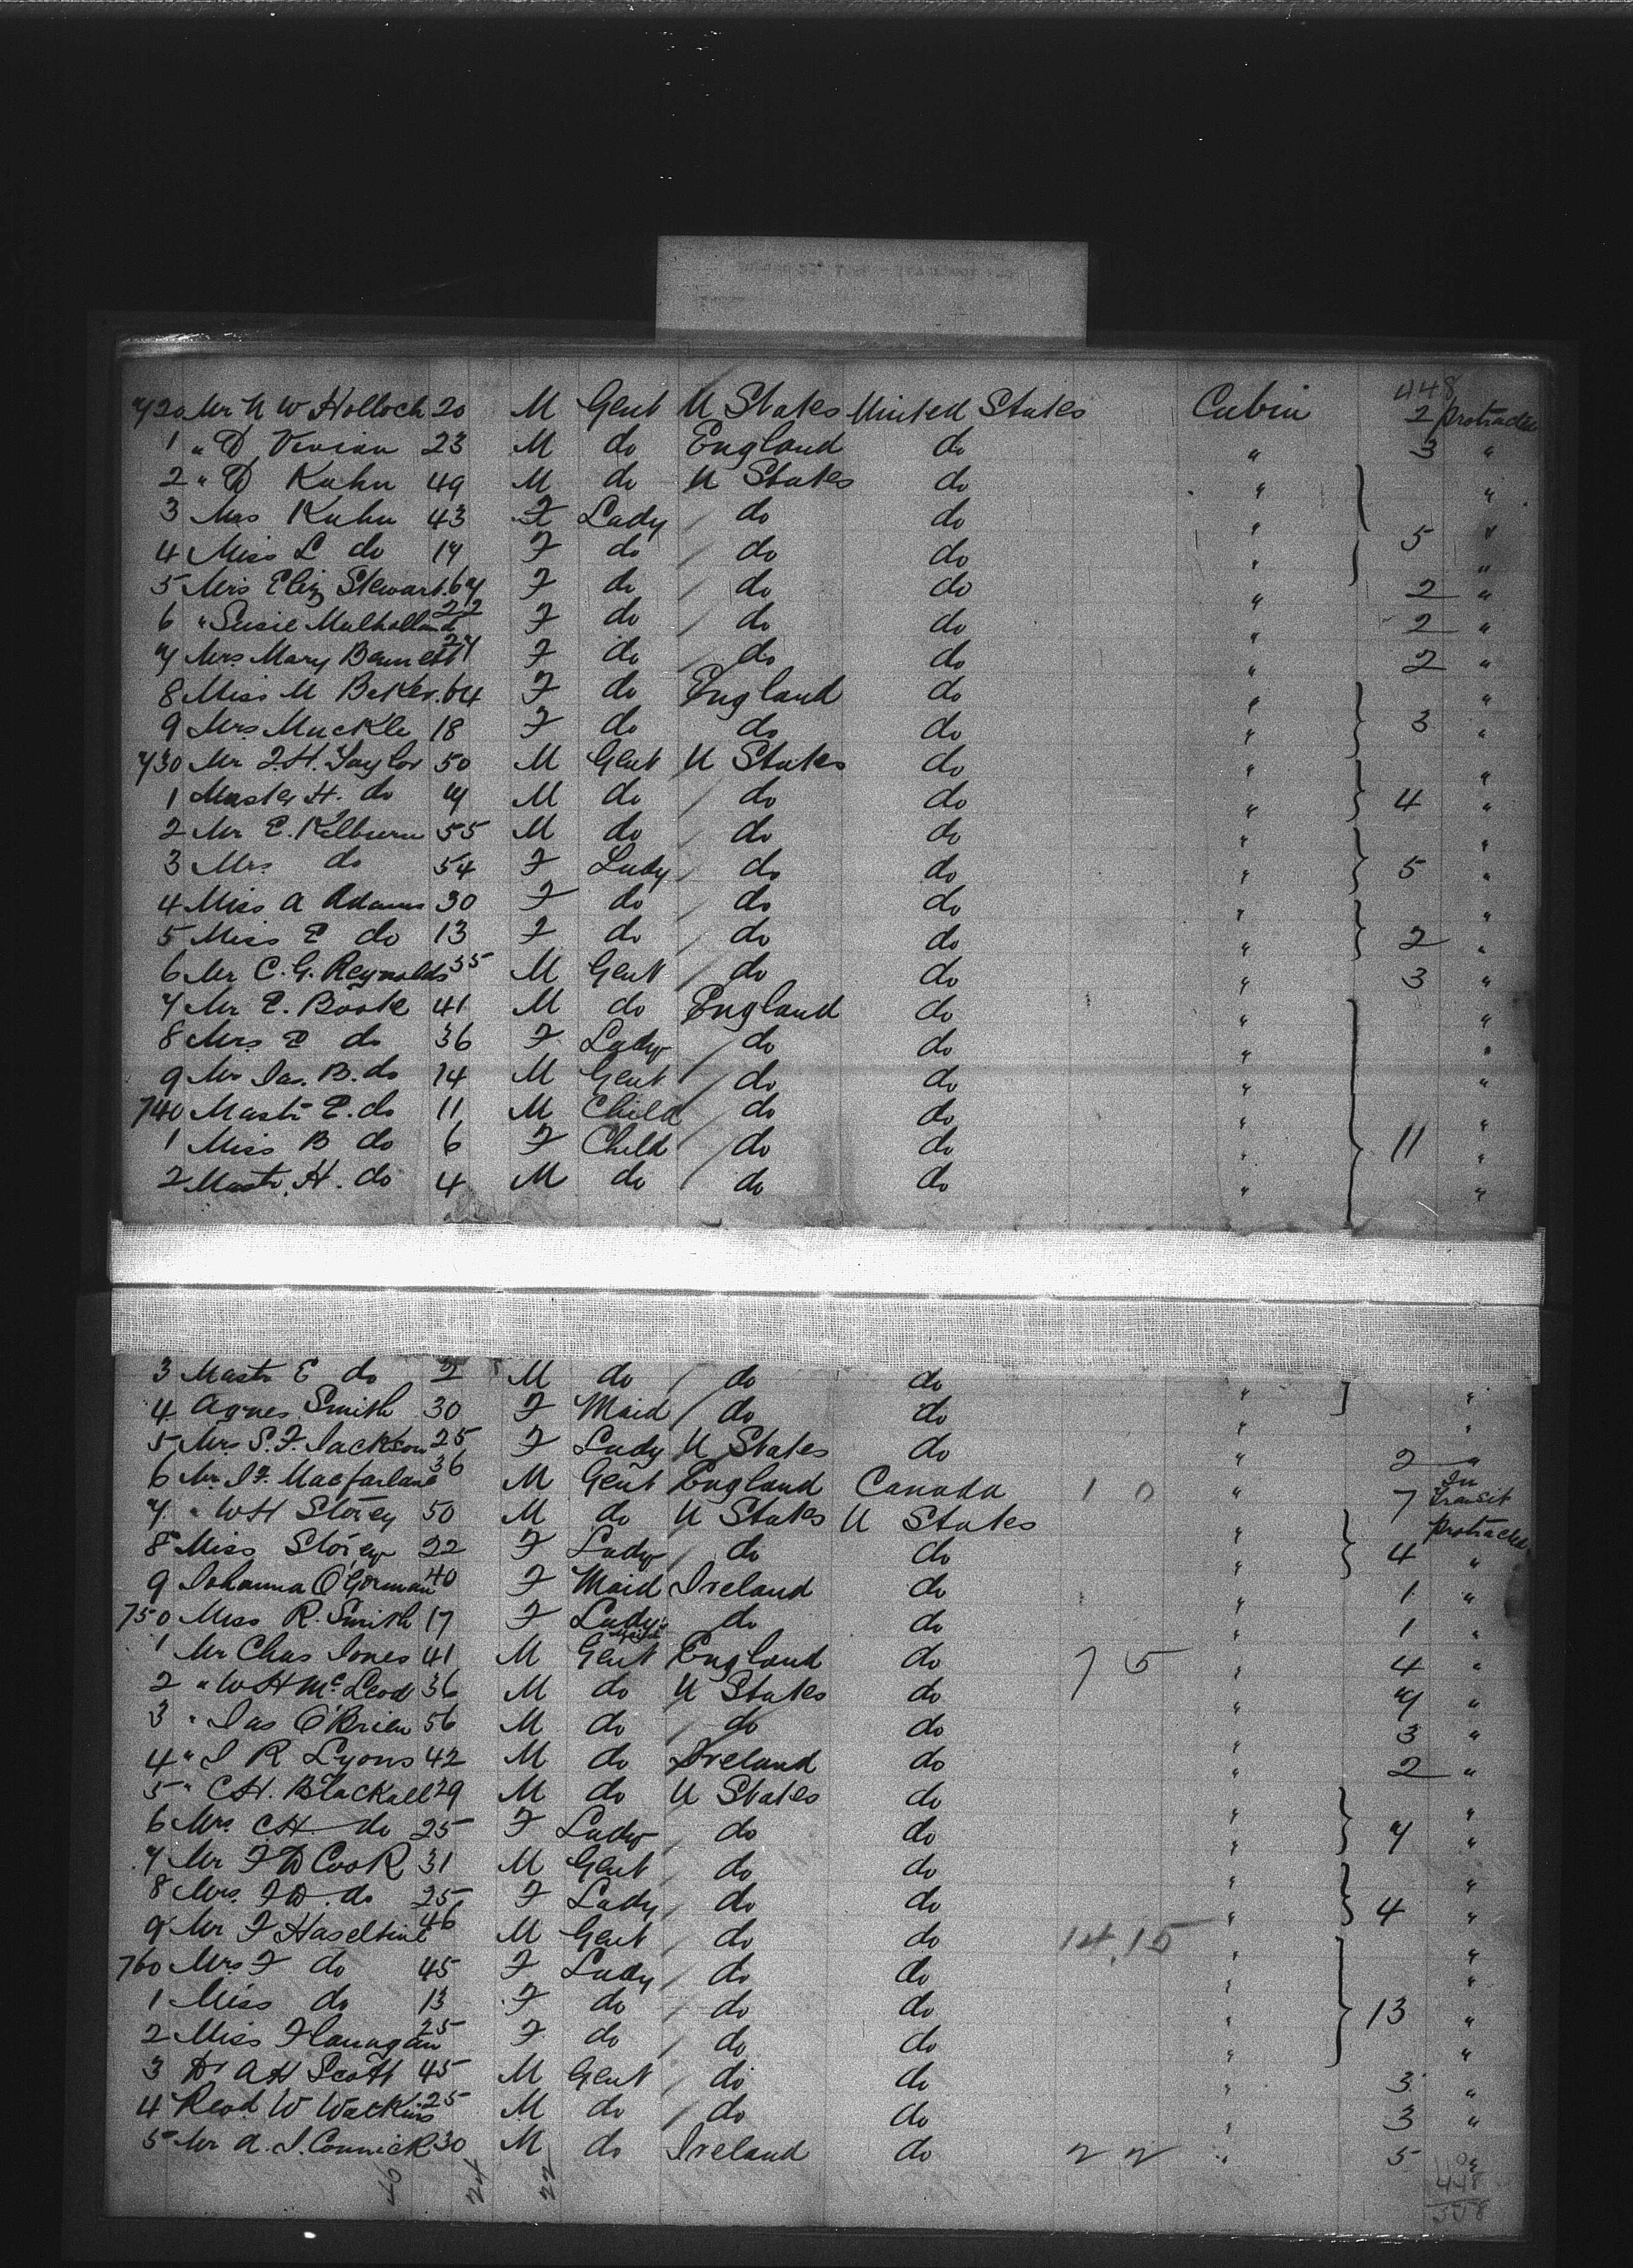 448
720 Mr N W Holloch 20 M Gent U States United States Cabin 2 protracted
1 " D Vivian 23 M do England do " 3 "
2 " D Kuhn 49 M do U States do " "
3 Mrs Kuhn 43 F Lady do do " 5 "
4 Miss L do 17 F do do do " "
5 Mrs Eliz Stewart 67 F do do do " 2 "
6 " Susie Mulholland 22 F do do do " 2 "
7 Mrs Mary Bennett 27 F do do do " 2 "
8 Miss M Baker 64 F do England do " "
9 Mrs Muckle 18 F do do do " 3 "
730 Mr J.H. Taylor 50 M Gent U States do " "
1 Master H. do 7 M do do do " 4 "
2 Mr E. Kilburn 55 M do do do " "
3 Mrs do 54 F Lady do do " 5 "
4 Miss A Adams 30 F do do do " "
5 Miss E do 13 F do do do " 2 "
6 Mr C. G. Reynolds 35 M Gent do do " 3 "
7 Mr E. Boote 41 M do England do " "
8 Mrs E do 36 F Lady do do " "
9 Mr Jas. B. do 14 M Gent do do " "
740 Mastr E. do 11 M Child do do " "
1 Miss B do 6 F Child do do " 11 "
2 Mastr. H. do 4 M do do do " "
3 Mastr E do 2 M do do do " "
4 Agnes Smith 30 F Maid do do " "
5 Mrs S. F. Jackson 25 F Lady U States do " 2 "
6 Mr Macfarlane 36 M Gent England Canada 1 0 " 7 In transit
7 " W H Storey 50 M do U States U States " protracted
8 Miss Storey 22 F Lady do do " 4 "
9 Johanna O'Gorman 40 F Maid Ireland do " 1 "
750 Miss R. Smith 17 F Lady do do " 1 "
1 Mr Chas Jones 41 M Gent England do 7 5 " 4 "
2 " W H McLeod 36 M do U States do " 7 "
3 " Jas O'Brien 56 M do do do " 3 "
4 " J R Lyons 42 M do Ireland do " 2 "
5 " C.H. Blackall 29 M do U States do " "
6 Mrs C.H. do 25 F Lady do do " 7 "
7 Mr F D Cook 31 M Gent do do " "
8 Mrs F D do 25 F Lady do do " 4 "
9 Mr F Haseltine 46 M Gent do do 14.15 " "
760 Mrs F do 45 F Lady do do " "
1 Miss do 13 F do do do " 13 "
2 Miss Flanagan 25 F do do do " "
3 Dr A H Scott 45 M Gent do do " 3 "
4 Revd W Watkins 25 M do do do " 3 "
5 Mr A. J. Connick 30 M do Ireland do 2 2 " 5 "
40 24 22
110
448
558